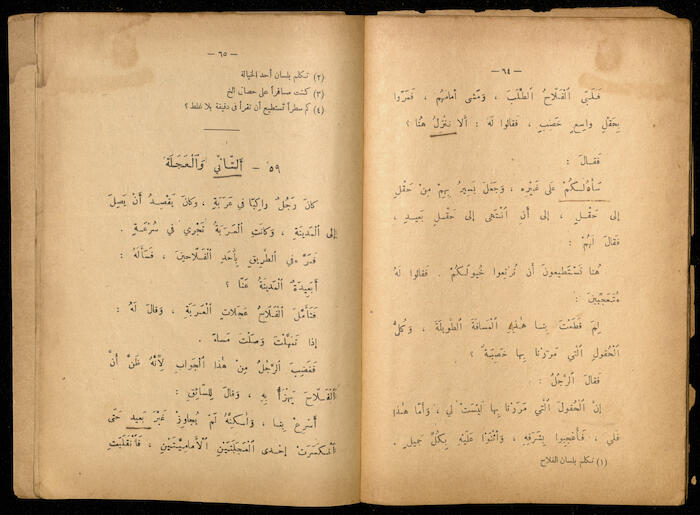 — ٦٤ —
فَلَبَّى ٱلْفَلَّاحُ ٱلطَّلَبَ ، وَمَشَى أَمَامَهُمْ ، فَمَرُّوا
بِحَقْلٍ وَاسِعٍ خَصْبٍ ، فَقَالُوا لَهُ : أَلَا نَنْزِلُ هُنَا ؟
فَقَالَ :
سَأَدُلُّكُمْ عَلَى غَيْرِهِ ، وَجَعَلَ يَسِيرُ بِهِمْ مِنْ حَقْلٍ
إِلَى حَقْلٍ ، إِلَى أَنِ ٱنْتَهَى إِلَى حَقْلٍ بَعِيدٍ ،
فَقَالَ لَهُمْ :
هُنَا تَسْتَطِيعُونَ أَنْ تُرْتِعُوا خُيُولَكُمْ . فَقَالُوا لَهُ
مُتَعَجِّبِينَ :
لِمَ قَطَعْتَ بِنَا هٰذِهِ ٱلْمَسَافَةَ ٱلطَّوِيلَةَ ، وَكُلُّ
ٱلْحُقُولِ ٱلَّتِي مَرَرْنَا بِهَا خَصْبَةٌ ؟
فَقَالَ ٱلرَّجُلُ :
إِنَّ ٱلْحُقُولَ ٱلَّتِي مَرَرْنَا بِهَا لَيْسَتْ لِي ، وَأَمَّا هٰذَا
فَلِي ، فَأُعْجِبُوا بِشَرَفِهِ ، وَأَثْنَوْا عَلَيْهِ بِكُلِّ جَمِيلٍ .
(١) تكلم بلسان الفلاح
— ٦٥ —
(٢) تكلم بلسان أحد الخيالة
(٣) كنت مسافراً على حصان الخ
(٤) كم سطراً تستطيع أن تقرأ فى دقيقة بلا غلط ؟
٥٩ – ٱلتَّأَنِّي وَٱلْعَجَلَةُ
كَانَ رَجُلٌ رَاكِبًا فِي عَرَبَةٍ ، وَكَانَ يَقْصِدُ أَنْ يَصِلَ
إِلَى ٱلْمَدِينَةِ ، وَكَانَتِ ٱلْعَرَبَةُ تَجْرِي فِي سُرْعَةٍ .
فَمَرَّ فِي ٱلطَّرِيقِ بِأَحَدِ ٱلْفَلَّاحِينَ ، فَسَأَلَهُ :
أَبَعِيدَةٌ ٱلْمَدِينَةُ عَنَّا ؟
فَتَأَمَّلَ ٱلْفَلَّاحُ عَجَلَاتِ ٱلْعَرَبَةِ ، وَقَالَ لَهُ :
إِذَا تَمَهَّلْتَ وَصَلْتَ مَسَاءً .
فَغَضِبَ ٱلرَّجُلُ مِنْ هٰذَا ٱلْجَوَابِ لِأَنَّهُ ظَنَّ أَنَّ
ٱلْفَلَّاحَ يَهْزَأُ بِهِ ، وَقَالَ لِلسَّائِقِ :
أَسْرِعْ بِنَا ، وَلٰكِنَّهُ لَمْ يُجَاوِزْ غَيْرَ بَعِيدٍ حَتَّى
ٱنْكَسَرَتْ إِحْدَى ٱلْعَجَلَتَيْنِ ٱلْأَمَامِيَّتَيْنِ ، فَٱنْقَلَبَتْ